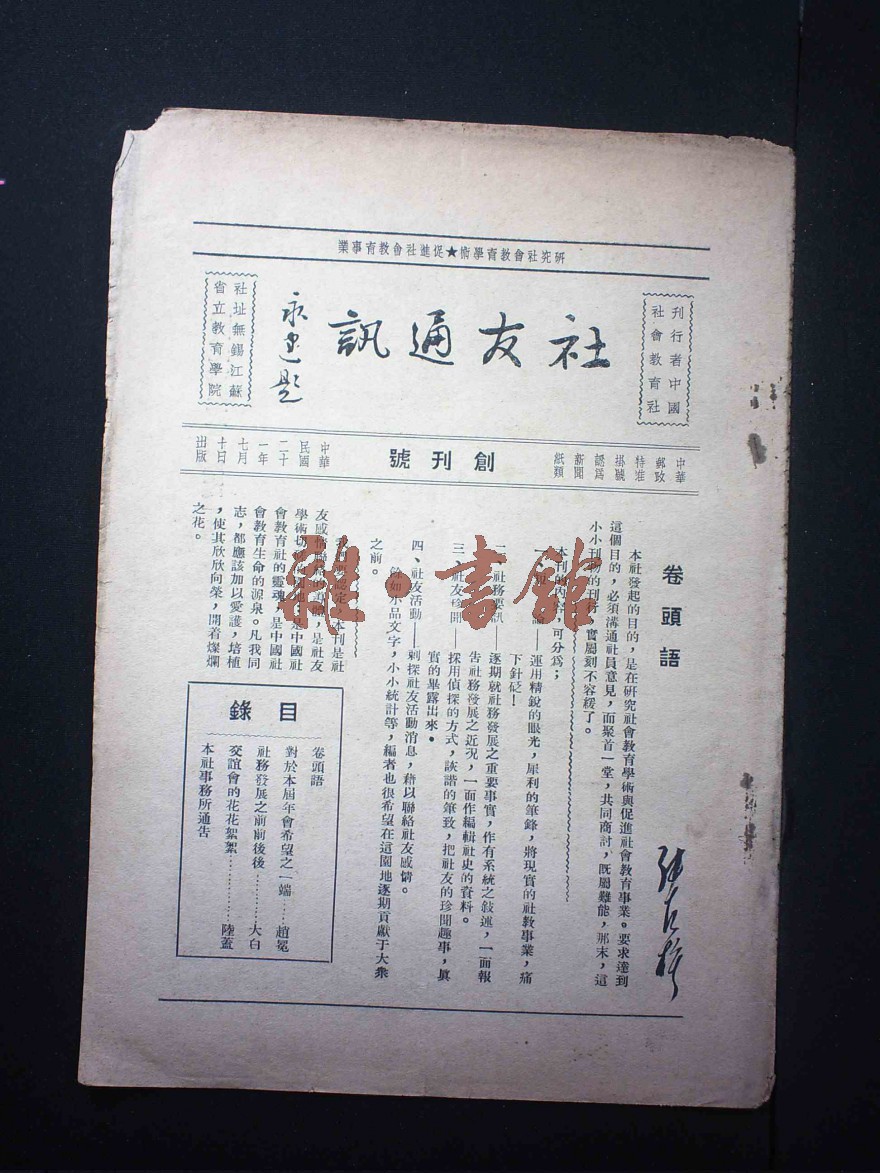 研究社會教育學術★促進社會教育事業
刊行者中國
社會教育社
社友通訊
永建題
社址無錫江蘇
省立教育學院
中華
郵政
特准
掛號
認爲
新聞
紙類
創刊號
中華
民國
二十
一年
七月
十日
出版
卷頭語
本社發起的目的，是在研究社會教育學術與促進社會教育事業。要求達到
這個目的，必須溝通社員意見，而聚首一堂，共同商討，既屬難能，那末，這
小小刊物的刊行，實屬刻不容緩了。
本刊的內容，可分爲；
一、
論——運用精銳的眼光，犀利的筆鋒，將現實的社教事業，痛
下針砭！
二、社務要訊——逐期就社務發展之重要事實，作有系統之敍述，一面報
告社務發展之近況，一面作編輯社史的資料。
三、社友珍聞——採用偵探的方式，詼諧的筆致，把社友的珍聞趣事，眞
實的畢露出來。
四、社友活動——剌探社友活動消息，藉以聯絡社友感情。
餘如小品文字，小小統計等，編者也很希望在這園地逐期貢獻于大衆
之前。
認定，本刊是社
友感情聯絡的
，是社友
學術切
地，是中國社
會教育社的靈魂，是中國社
會教育生命的源泉。凡我同
志，都應該加以愛護，培植
，使其欣欣向榮，開着燦爛
之花。
目錄
卷頭語
對於本屆年會希望之一端……趙冕
社務發展之前前後後……大白
交誼會的花花絮絮……陸蓋
本社事務所通告
雜·書館